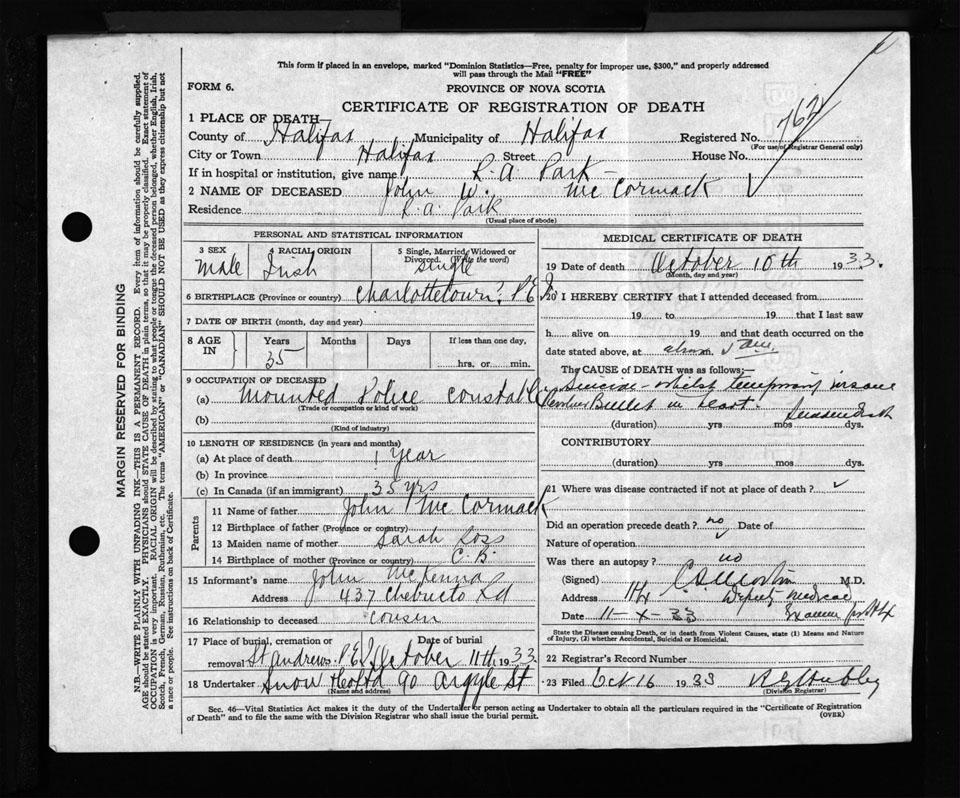 This form if placed in an envelope, marked "Dominion Statistics—Free, penalty for improper use, $300," and properly addressed
will pass through the Mail "FREE"
FORM 6.
PROVINCE OF NOVA SCOTIA
CERTIFICATE OF REGISTRATION OF DEATH
1 PLACE OF DEATH—
County of Halifax Municipality of Halifax Registered No. 762
(For use of Registrar General only)
City or Town Halifax Street House No.
If in hospital or institution, give name R.A. Park
2 NAME OF DECEASED John W. McCormack
Residence R.A. Park
(Usual place of abode)
PERSONAL AND STATISTICAL INFORMATION
3 SEX Male
4 RACIAL ORIGIN Irish
5 Single, Married, Widowed or Divorced. (Write the word) Single
6 BIRTHPLACE (Province or country) Charlottetown, P.E.I.
7 DATE OF BIRTH (month, day and year)
8 AGE IN
Years Months Days If less than one day,
35 hrs. or min.
9 OCCUPATION OF DECEASED
(a) Mounted Police Constable
(Trade or occupation or kind of work)
(b)
(Kind of industry)
10 LENGTH OF RESIDENCE (in years and months)
(a) At place of death 1 Year
(b) In province
(c) In Canada (if an immigrant) 35 yrs
Parents
11 Name of father John McCormack
12 Birthplace of father (Province or country)
13 Maiden name of mother Sarah Ross
14 Birthplace of mother (Province or country) C.B.
15 Informant's name John McKenna
Address 437 Chebucto Rd
16 Relationship to deceased Cousin
17 Place of burial, cremation or removal St Andrews P.E.I. Date of burial October 11th 1933
18 Undertaker Snow & Co Ltd 90 Argyle St
(Name and address)
MEDICAL CERTIFICATE OF DEATH
19 Date of death October 10th 1933.
(Month, day and year)
20 I HEREBY CERTIFY that I attended deceased from
19 to 19 that I last saw
h alive on 19 and that death occurred on the
date stated above, at about 5 am. m.
The CAUSE OF DEATH was as follows:—
Suicide whilst temporary insane
Revolver Bullet in heart. Sudden Death
(duration) yrs mos dys.
CONTRIBUTORY
(duration) yrs mos dys.
21 Where was disease contracted if not at place of death?
Did an operation precede death? no Date of
Nature of operation
Was there an autopsy? no
(Signed) M.D.
Address Hfx Deputy Medical
Date 11-X-33 Examiner for Hfx
State the Disease causing Death, or in death from Violent Causes, state (1) Means and Nature
of Injury, (2) whether Accidental, Suicidal or Homicidal.
22 Registrar's Record Number
23 Filed Oct 16 1933
(Division Registrar)
Sec. 46—Vital Statistics Act makes it the duty of the Undertaker or person acting as Undertaker to obtain all the particulars required in the "Certificate of Registration
of Death" and to file the same with the Division Registrar who shall issue the burial permit.
(OVER)
MARGIN RESERVED FOR BINDING
N.B.—WRITE PLAINLY WITH UNFADING INK—THIS IS A PERMANENT RECORD. Every item of information should be carefully supplied.
AGE should be stated EXACTLY. PHYSICIANS should STATE CAUSE OF DEATH in plain terms, so that it may be properly classified. Exact statement of
OCCUPATION is very important. RACIAL ORIGIN will be described by stating to what people or tongue the deceased person belonged, whether English, Irish,
Scotch, French, German, Russian, Ruthenian, etc. The terms "AMERICAN" or "CANADIAN" SHOULD NOT BE USED as they express citizenship but not
a race or people. See instructions on back of Certificate.